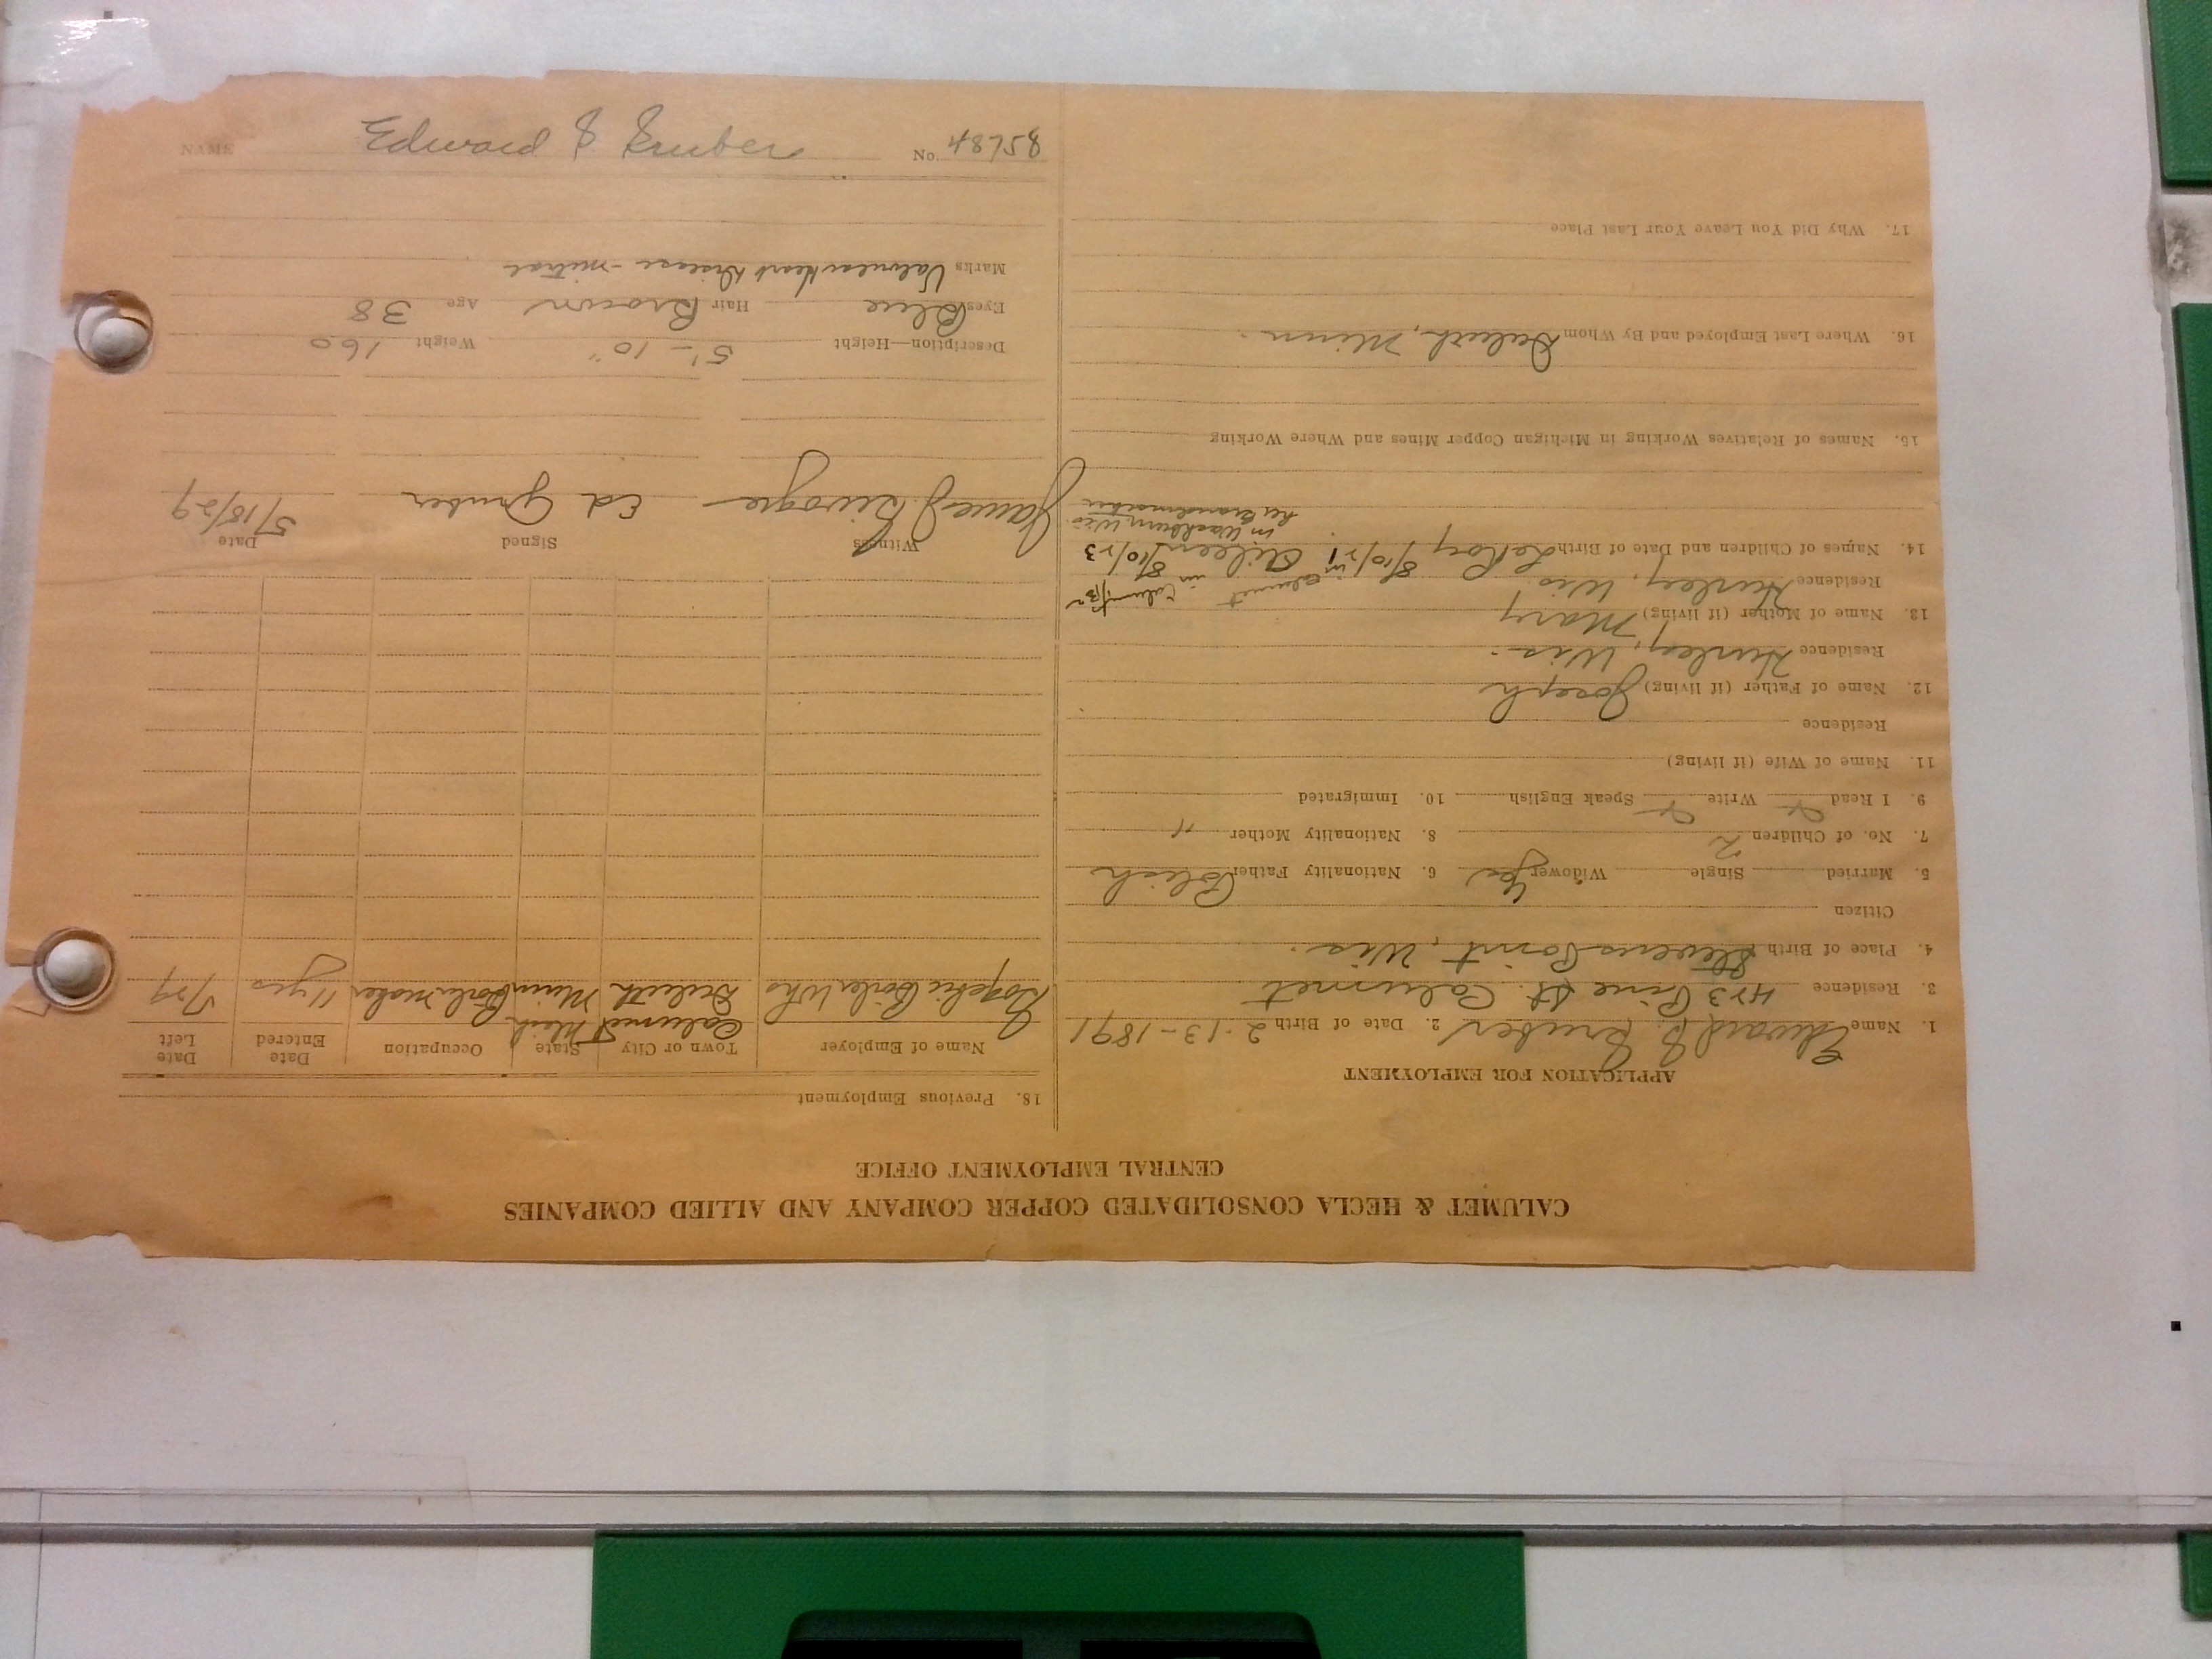 CALUMET & HECLA CONSOLIDATED COPPER COMPANY AND ALLIED COMPANIES
CENTRAL EMPLOYMENT OFFICE
APPLICATION FOR EMPLOYMENT
1. Name Edward J. Gruber 2. Date of Birth 2-13-1891
3. Residence 423 Pine St. Calumet
4. Place of Birth Stevens Point, Wis.
Citizen
5. Married Single Widower Yes 6. Nationality Father Polish
7. No. of Children 2 8. Nationality Mother "
9. I Read Write Speak English 10. Immigrated
11. Name of Wife (if living)
Residence
12. Name of Father (if living) Joseph
Residence Hurley, Wis.
13. Name of Mother (if living) Mary
Residence Hurley, Wis.
14. Names of Children and Date of Birth LeRoy 8/10/21 Aileen 8/10/23
in Calumet in Calumet
in Washburn Wis.
grandmother
15. Names of Relatives Working in Michigan Copper Mines and Where Working
16. Where Last Employed and By Whom Duluth, Minn.
17. Why Did You Leave Your Last Place
18. Previous Employment
Name of Employer Town or City State Occupation Date Entered Date Left
Calumet Mich
Boiler Wks Duluth Minn Boilermaker 11 yrs
Witness Signed Date
James J. Ed Gruber 5/18/29
Description—Height 5'-10" Weight 160
Eyes Blue Hair Brown Age 38
Marks Valvular Heart Disease - mitral
NAME Edward J. Gruber No. 48758